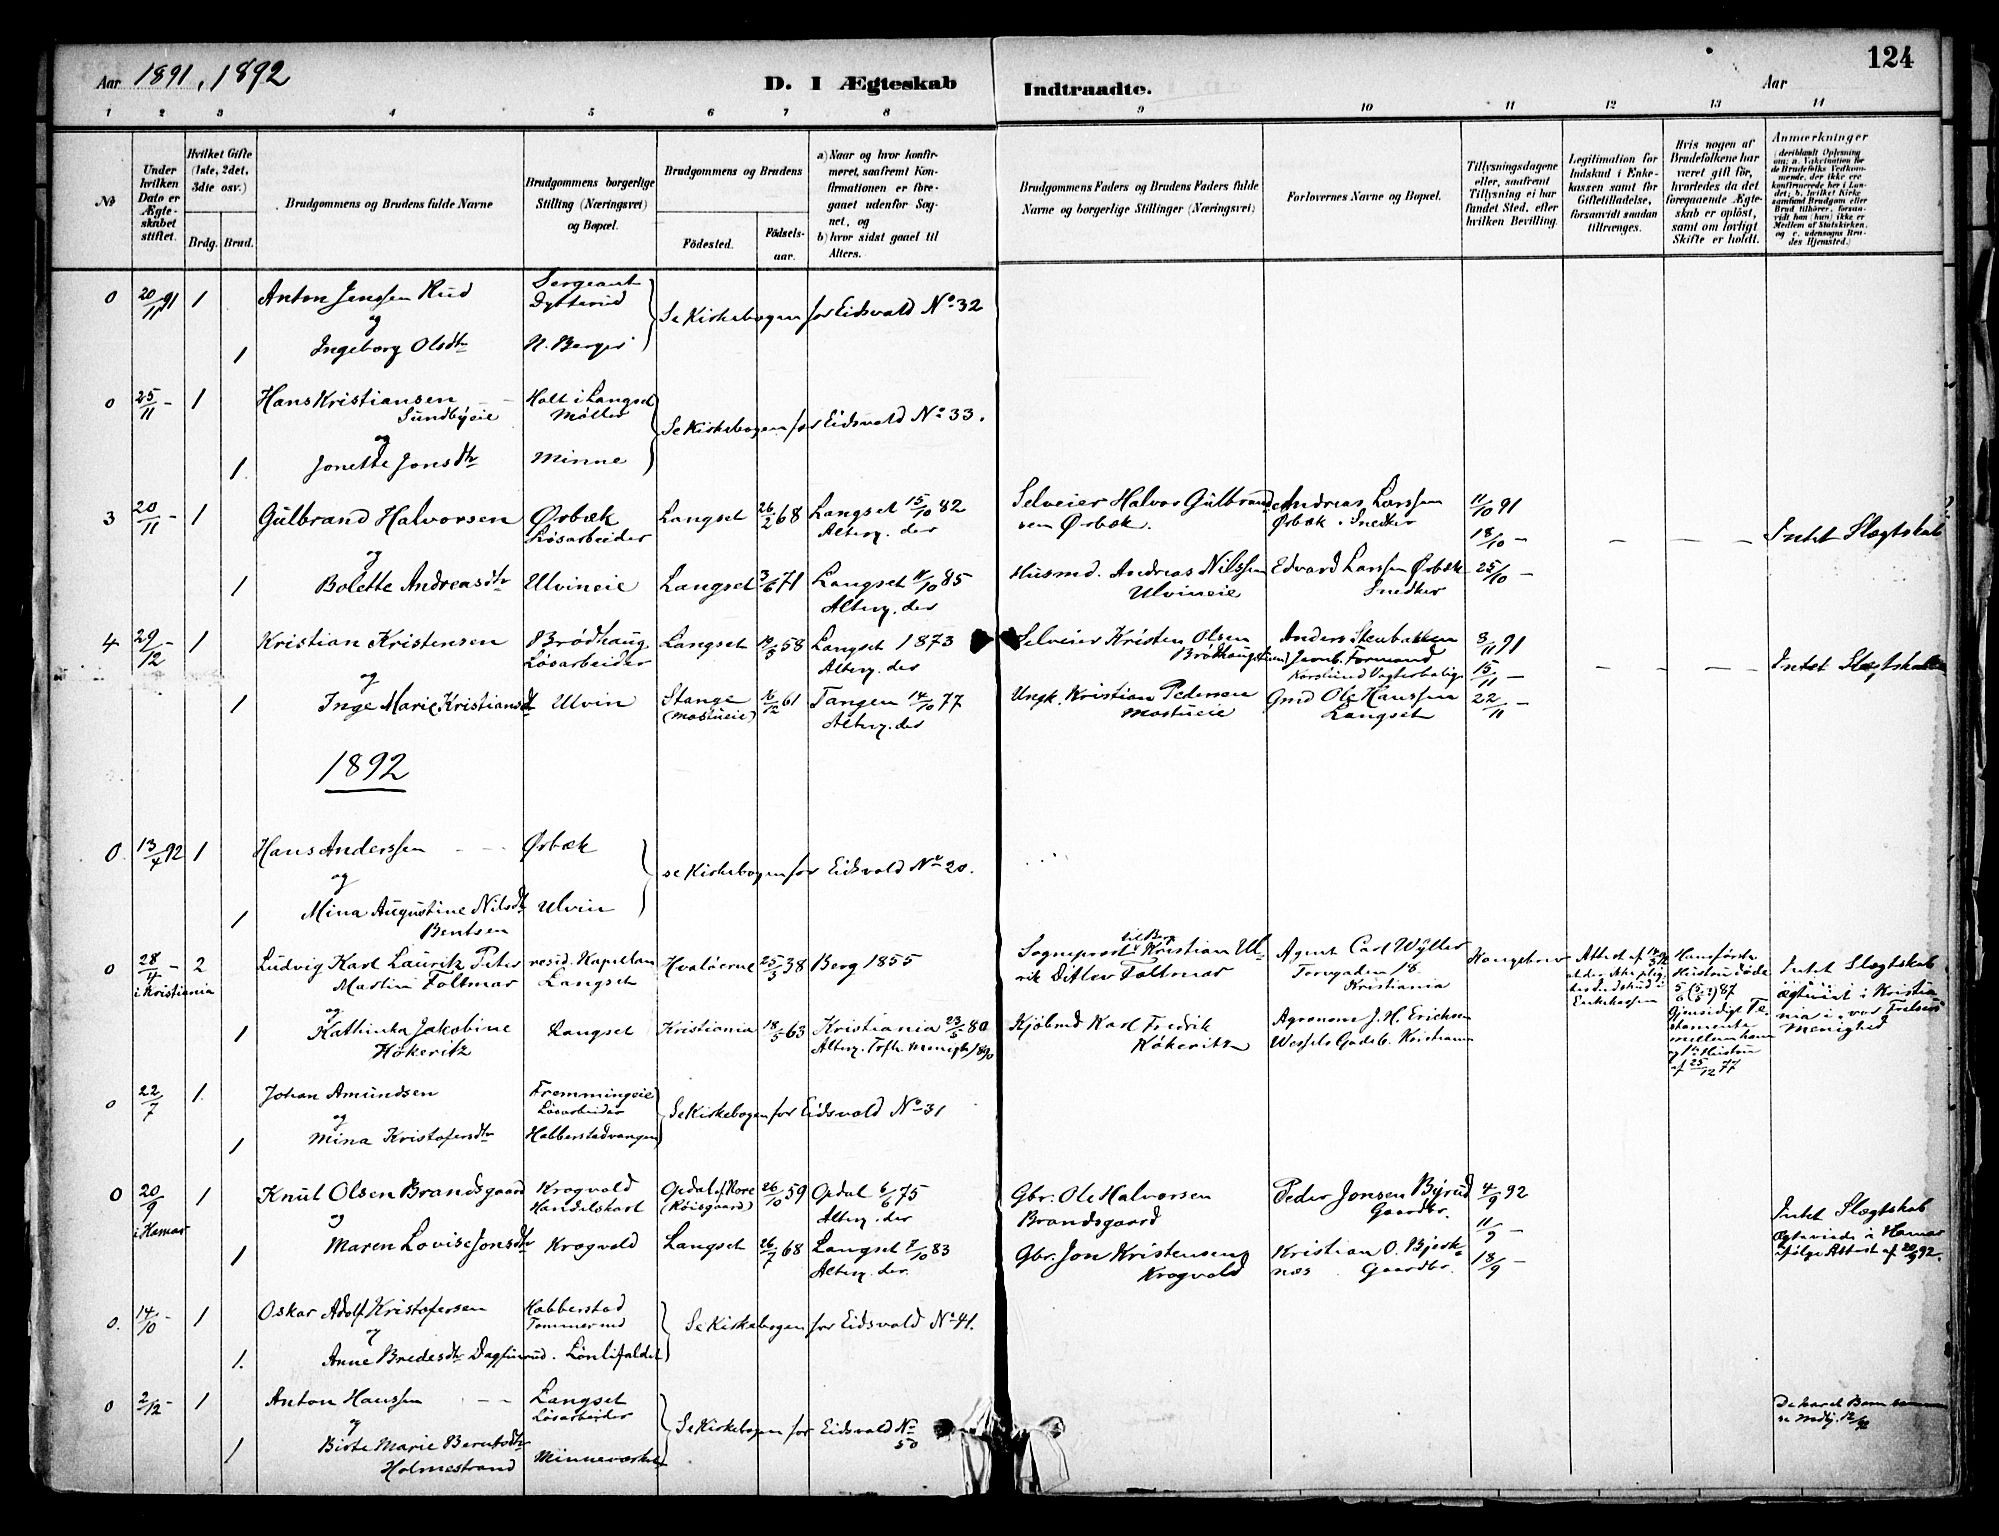 Aar 1891, 1892
D. I Ægteskab
Indtraadte.
Aar
124
1 2 3 4 5 6 7 8 9 10 11 12 13 14
No
Under hvilken Dato er Ægteskabet stiftet.
Hvilket Gifte (1ste, 2det, 3die osv.)
Brdg. Brud.
Brudgommens og Brudens fulde Navne
Brudgommens borgerlige Stilling (Næringsvei) og Bopæl.
Brudgommens og Brudens
Fødested. Fødselsaar.
a) Naar og hvor konfirmeret, saafremt Konfirmationen er foregaaet udenfor Sognet, og
b) hvor sidst gaaet til Alters.
Brudgommens Faders og Brudens Faders fulde Navne og borgerlige Stillinger (Næringsvei)
Forlovernes Navne og Bopæl.
Tillysningsdagene eller, saafremt Tillysning ei har fundet Sted, efter hvilken Bevilling.
Legitimation for Indskud i Enkekassen samt for Giftetilladelse, forsaavidt saadan tiltrænges.
Hvis nogen af Brudefolkene har været gift før, hvorledes da det foregaaende Ægteskab er opløst, samt om lovligt Skifte er holdt.
Anmærkninger (deriblandt Oplysning om: a. Vakcination for de Brudefolks Vedkommende, der ikke ere konfirmerede her i Landet; b. hvilket Kirkesamfund Brudgom eller Brud tilhører, forsaavidt han (hun) ikke er Medlem af Statskirken, og c. udensogns Brudes Hjemsted.)
0 20/11 91 1 Anton Jenssen Rud Sergeant Dytterud
og
1 Ingeborg Olsdtr N. Berger
Se Kirkebogen for Eidsvold No 32
0 25/11 - 1 Hans Kristiansen Sundbyeie Holt i Langset Møller
og
1 Jonette Jonsdtr Minne
Se Kirkebogen for Eidsvold No 33.
3 20/11 - 1 Gulbrand Halvorsen Ørbæk Løsarbeider Langset 26/2 68 Langset 15/10 82 Alterg. der Selveier Halvor Gulbrandsen Ørbæk. Andreas Larssen Ørbæk. Snedker 11/10 91 18/10 - — — — Intet Slægtskab
og
1 Bolette Andreasdtr Ulvineie Langset 3/6 71 Langset 11/10 85 Alterg. der Husmd. Andreas Nilssen Ulvineie Edvard Larssen Ørbæk Snedker 25/10 -
4 29/12 - 1 Kristian Kristensen Brødhaug Løsarbeider Langset 19/3 58 Langset 1873 Alterg. der Selveier Kristen Olsen Brødhaug Anders Stenbakken Jernb. Formand Vogterbolig 8/11 91 15/11 - — — — Intet Slægtskab
og
1 Inge Marie Kristiansdtr Ulvin Stange (Mostueie) 16/12 61 Tangen 14/10 77 Alterg. der Ungk. Kristian Pedersen Mostueie Gmd Ole Hanssen Langset 22/11 -
1892
0. 13/4 92 1 Hans Anderssen Ørbæk
og
1 Mina Augustine Nilsdtr Bentsen Ulvin
se Kirkebogen for Eidsvold No 20.
0 28/4 - i Kristiania 2 Ludvig Karl Lauritz Peter Martin Foltmar resid. Kapellan Langset Hvaløerne 25/3 38 Berg 1855 Sogneprest til Berg Kristian Ulrik Ditlev Foltmar Agent Carl Wyller Torvgaden 18 Kristiania Kongebrev
og
1 Kathinka Jakobine Høkeritz Langset Kristiania 18/5 63 Kristiania 23/5 80 Kjøbmd Karl Fredrik Høkeritz Agronom J. H. Erichsen Wessels Gade 6. Kristiania
Gjensidigt Testamente mellem ham og 1te Hustru af 25/12 77
Intet Slægtskab
ægteviet i Kristiania i vor Frelsers Menighed
0 22/7 1. Johan Amundsen Fremmingeie Løsarbeider
og
1 Mina Kristofersdtr Habberstadvangen
Se Kirkebogen for Eidsvold No 31
0 20/9 i Hamar 1 Knut Olsen Brandsgaard Krogvold Handelskarl Opdal af Nore 26/10 59 Opdal 6/6 75 Alterg. der Gbr. Ole Halvorsen Brandsgaard Peder Jonsen Byrud Gaardbr. 4/9 92 11/9 -
og
1 Maren Lovise Jonsdtr Krogvold Langset 26/7 68 Langset 7/10 83 Alterg. der. Gbr. Jon Kristensen Krogvold Kristian O. Bjerknæs Gaardbr. 18/9 -
Intet Slægtskab
Ægteviede i Hamar ifølge Attest af 20/9 92.
0. 14/10 - 1 Oskar Adolf Kristofersen Habberstad Tømmermd
og
1. Anne Bredesdtr Dagfinrud. Lønlifaldet
Se Kirkebogen for Eidsvold No 41.
0 2/12 - 1 Anton Hanssen Langset Løsarbeider
og
1 Birte Marie Berntsdtr Holmestrand Minneværket
Se Kirkebogen for Eidsvold No 50
De har et Barn sammen